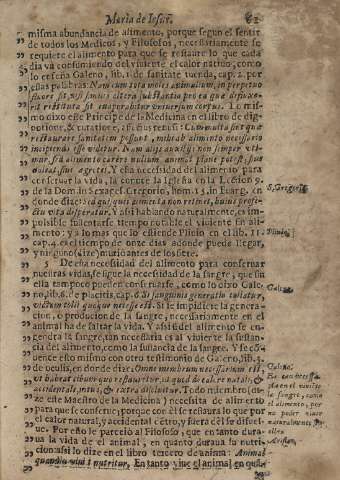 Maria de Iesus. 62
misma abundancia de alimento, porque segun el sentir
de todos los Medicos, y Filosofos, necessariamente se
requiere el alimento para que se restaure lo que cada
dia va consumiendo del viviente el calor natiuo, como
lo enseña Galeno, lib. 1. de sanitate tuenda, cap. 2. por
estas palabras: Nam cum tota moles animalium, in perpetuo
fluore sit, nisi simul altera substantia pro ea quæ
restituta sit euaporabitur vniuersum corpus. Lo mis-
mo dixo este Principe de la Medicina en el libro de dig-
restaurare possunt, mihi ab alimento necessario
esse videtur. Nam alijs auxilijs non semper vti-
mur, sed alimento carere nullum animal plane potest, siue
valeat, siue ægrotet. Y esta necessidad del alimento para
conseruar la vida, la conoce la Iglesia en la Leccion 9.
de la Dom. in Sexages. Gregorio, hom. 15. in Euang. en
donde dize: Sed qui alimenta non retinet, huius profe-
ctò vita desperatur. Y assi hablando naturalmente, es im-
possible sustentarse tiempo notable el viuiente sin ali-
mento: y a lo mas que lo estiende Plinio en el lib. 11.
cap. 4. es el tiempo de onze dias adonde puede llegar,
y ninguno (dize) muriò antes de los siete.
5 De esta necessidad del alimento para conseruar
nuestras vidas, se sigue la necessidad de la sangre, que sin
ella tampoco pueden conseruarse, como lo dixo Gale-
no, lib. 6. de placitis, cap. 6. Si sanguinis generatio tollatur,
victum tolli quoque necesse est. Si se impidiere la genera-
cion, o produccion de la sangre, necessariamente en el
animal ha de faltar la vida. Y assi si del alimento se en-
gendra la sangre, tan necessaria es al viuiente la sustan-
cia del alimento, como la sustancia de la sangre. Y se co-
noce esto mismo con otro testimonio de Galeno, lib. 4.
de oculis, en donde dize: Omne membrum necessarium est,
vt habeat cibum quo restauratur id quod de calore natali, &
accidentali, intus, & extra dissoluitur. Todo miembro (di-
ze este Maestro de la Medicina) necessita de alimento
para que se conserue; porque con èl se restaura lo que por
el calor natural, y accidental dentro, y fuera dèl se dissuel-
ue. Por esso le pareciò al Filosofo, que en tanto dura-
ua la vida de el animal, en quanto duraua su nutri-
cion: assi lo dize en el libro tercero de anima: Animal
quandiu viuit nutritur. En tanto viue el animal en quan-
S. Gregorio
Plinio.
Galeno.
Galeno.
la sangre, como
el alimento, por
no poder viuir
naturalmente